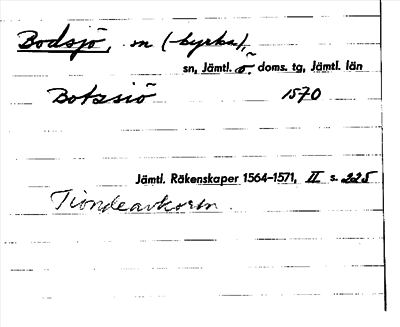 Bodsjö, sn (-kyrka),
sn, Jämtl. ö. doms. tg, Jämtl. län
Botzsiö 1570
Jämtl. Räkenskaper 1564–1571, II s. 225
Tiondeavkorta